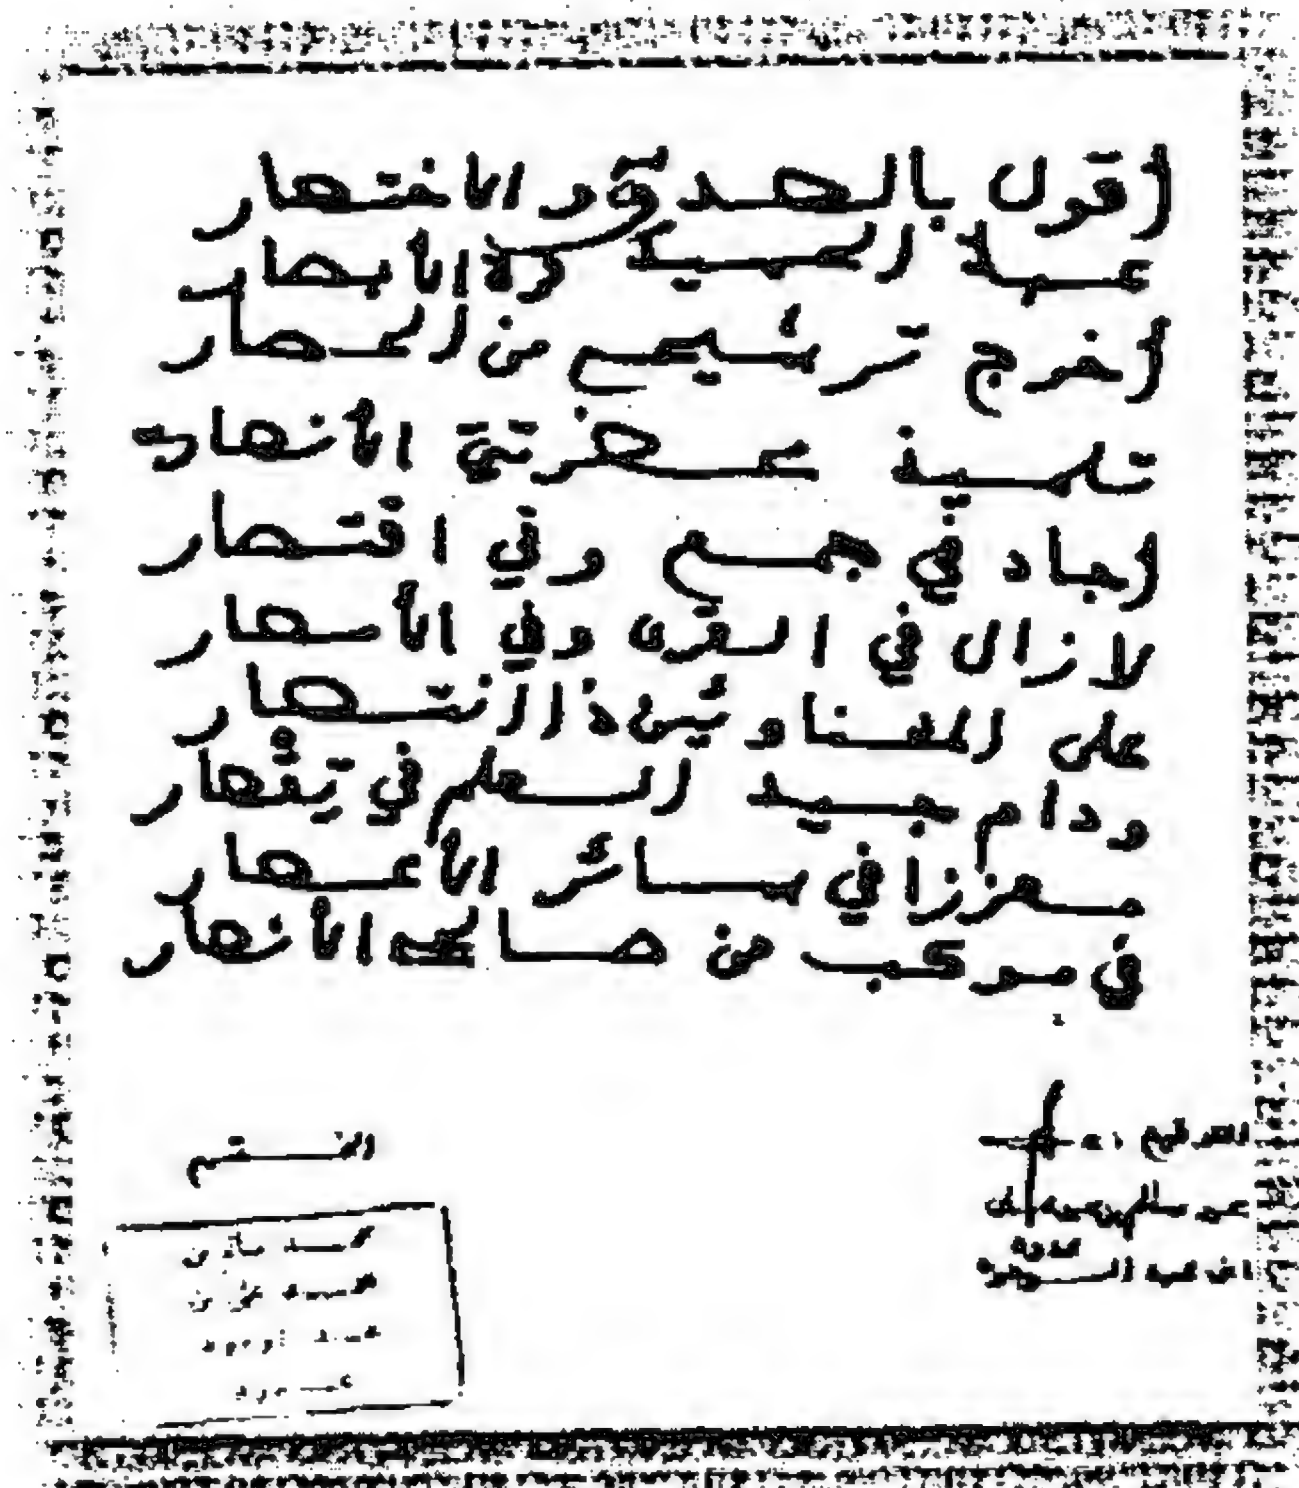 أقول بالصدق والاختصار
عبد المجيد قرة الأبصار
أخرج ترشيح من المحصار
تلميذ محضرتي الأنصار
أجاد في جمع وفي اقتصار
لا زال في القرى وفي الأمصار
على المناوئين ذا انتصار
ودام جيد العلم في تقصار
معززا في سائر الأعصار
في موكب من صالح الأنصار
الختم
التوقيع